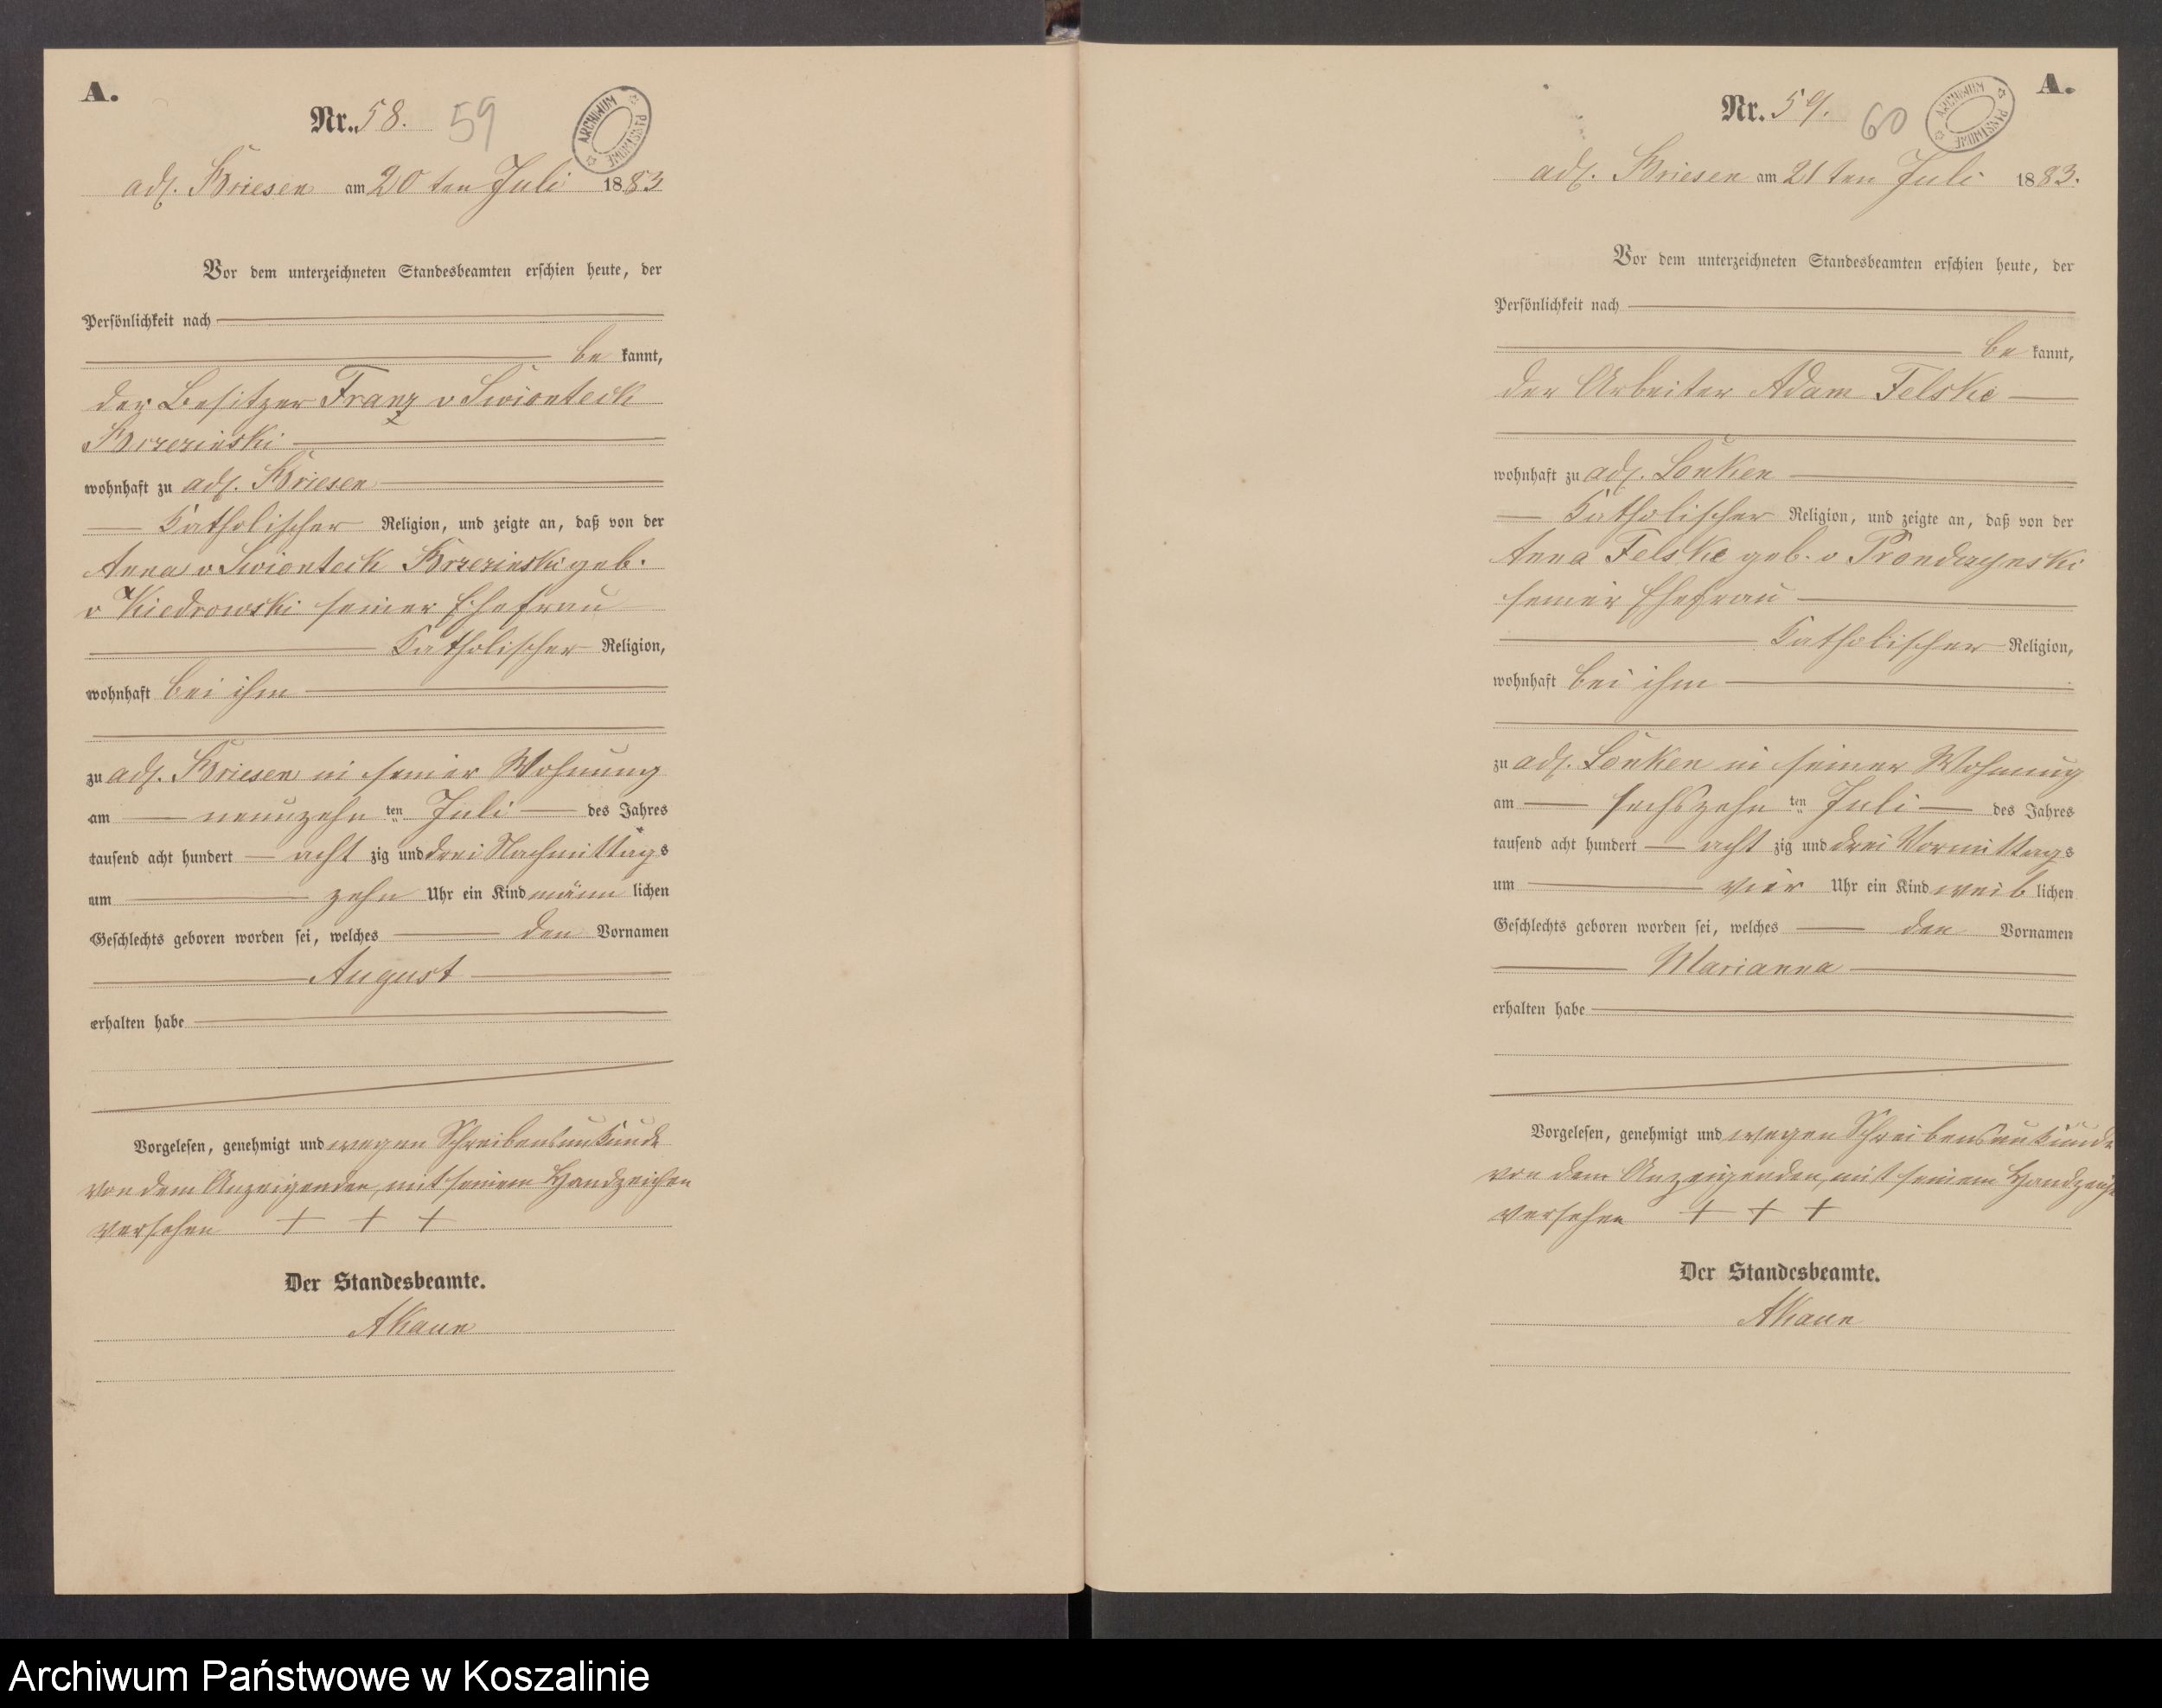 A.
Nr. 58. 59
ARCHIWUM PAŃSTWOWE
adl. Briesen am 20 ten Juli 1883
Vor dem unterzeichneten Standesbeamten erschien heute, der
Persönlichkeit nach
be kannt,
der Besitzer Franz v Swionteck
Brzezinski
wohnhaft zu adl. Briesen
Katholischer Religion, und zeigte an, daß von der
Anna v Swionteck Brzezinski geb.
v Kiedrowski seiner Ehefrau
Katholischer Religion,
wohnhaft bei ihm
zu adl. Briesen in seiner Wohnung
am neunzehn ten Juli des Jahres
tausend acht hundert acht zig und drei Nachmittags
um zehn Uhr ein Kind männ lichen
Geschlechts geboren worden sei, welches den Vornamen
August
erhalten habe
Vorgelesen, genehmigt und wegen Schreibensunkunde
von dem Anzeigenden, mit seinem Handzeichen
versehen + + +
Der Standesbeamte.
AKaun
A.
Nr. 59. 60
ARCHIWUM PAŃSTWOWE
adl. Briesen am 21 ten Juli 1883.
Vor dem unterzeichneten Standesbeamten erschien heute, der
Persönlichkeit nach
be kannt,
der Arbeiter Adam Felske
wohnhaft zu adl. Lonken
Katholischer Religion, und zeigte an, daß von der
Anna Felske geb. v Prondzynski
seiner Ehefrau
Katholischer Religion,
wohnhaft bei ihm
zu adl. Lonken in seiner Wohnung
am sechszehn ten Juli des Jahres
tausend acht hundert acht zig und drei Vormittags
um vier Uhr ein Kind weib lichen
Geschlechts geboren worden sei, welches den Vornamen
Marianna
erhalten habe
Vorgelesen, genehmigt und wegen Schreibensunkunde
von dem Anzeigenden, mit seinem Handzeichen
versehen + + +
Der Standesbeamte.
AKaun
Archiwum Państwowe w Koszalinie